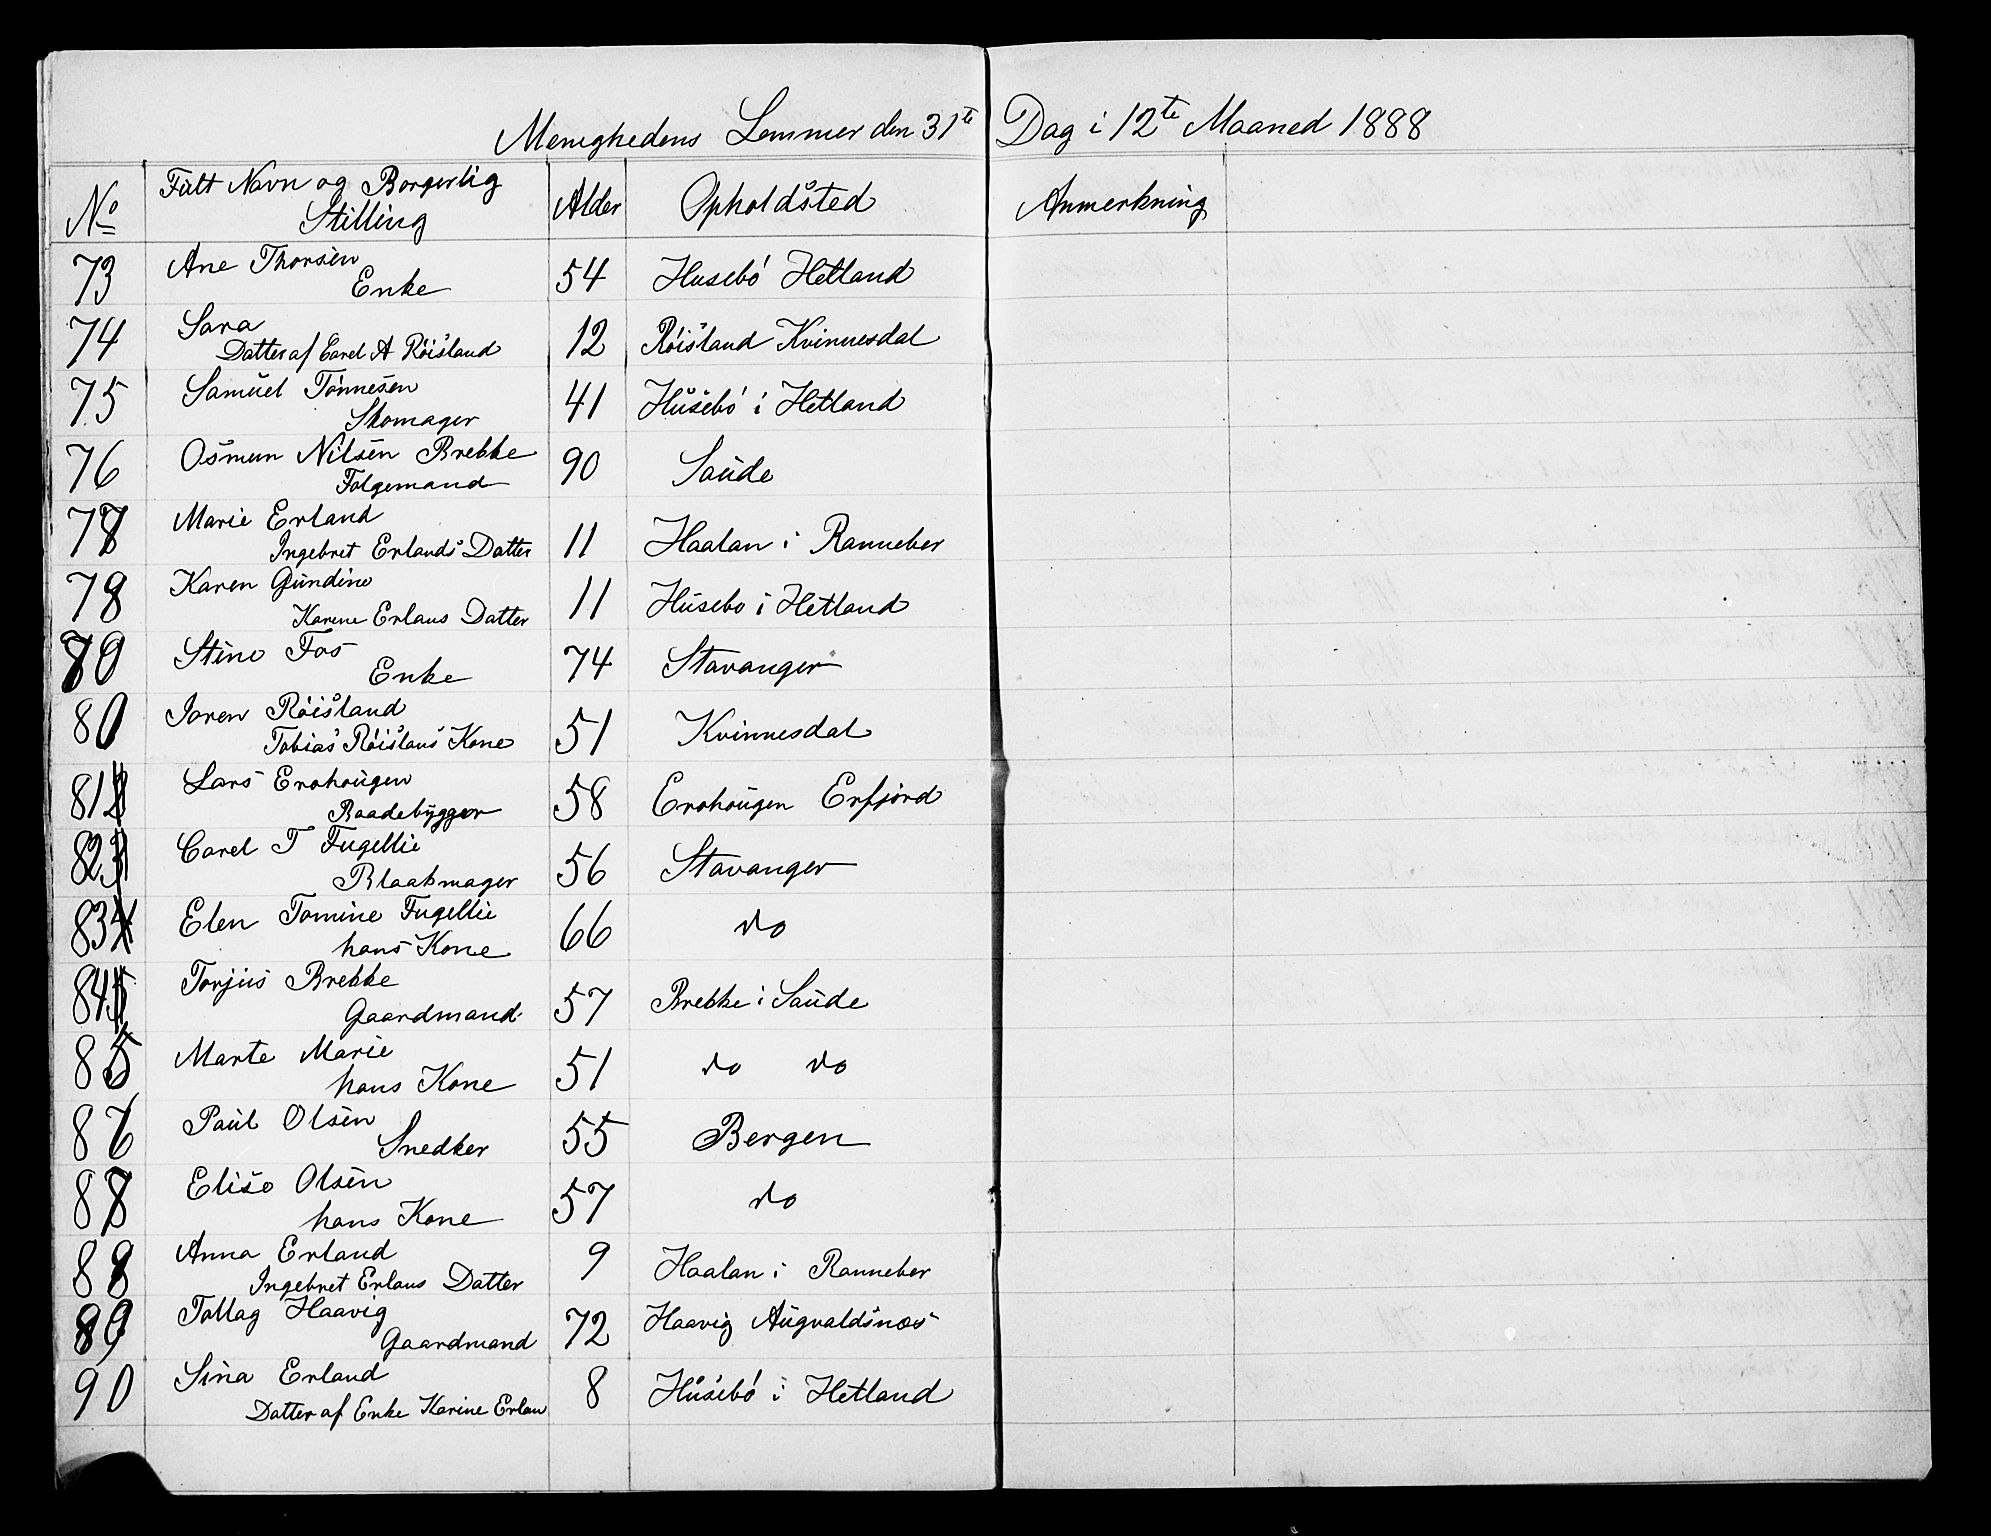 Menighedens Lemmer den 31te Dag i 12te Maaned 1888
No Fult Navn og Borgerlig Stilling Alder Opholdsted Anmerkning
73 Ane Thorsen
Enke 54 Husebö Hetland
74 Sara
Datter af Carel A Röisland 12 Röisland Kvinnesdal
75 Samuel Tönnesen
Skomager 41 Husebö i Hetland
76 Osmun Nilsen Brekke
Folgemand 90 Saude
Marie Erland
Ingebret Erlands Datter 11 Haalan i Ranneber
78 Karen Gundine
Karine Erlans Datter 11 Husebo i Hetland
Stine Fos
Enke 74 Stavanger
80 Joren Röisland
Tobias Röislans Kone 51 Kvinnesdal
81 Lars Erohougen
Baadebygger 58 Erohougen Erfjord
82 Carel T Fugellie
Blaakmager 56 Stavanger
83 Elen Tomine Fugellie
hans Kone 66 do
84 Torjus Brekke
Gaardmand 57 Brekke i Saude
85 Marte Marie
hans Kone 51 do do
86 Paul Olsen
Snedker 55 Bergen
87 Elise Olsen
hans Kone 57 do
88 Anna Erland
Ingebret Erlans Datter 9 Haalan i Ranneber
89 Tollag Haavig
Gaardmand 72 Haavig Augvaldsnæs
90 Sina Erland
Datter af Enke Karine Erlan 8 Husebö i Hetland